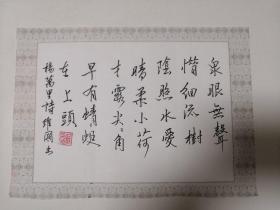 泉眼無聲
惜細流樹
陰照水愛
晴柔小荷
才露尖尖角
早有蜻蜓
立上頭
楊萬里詩